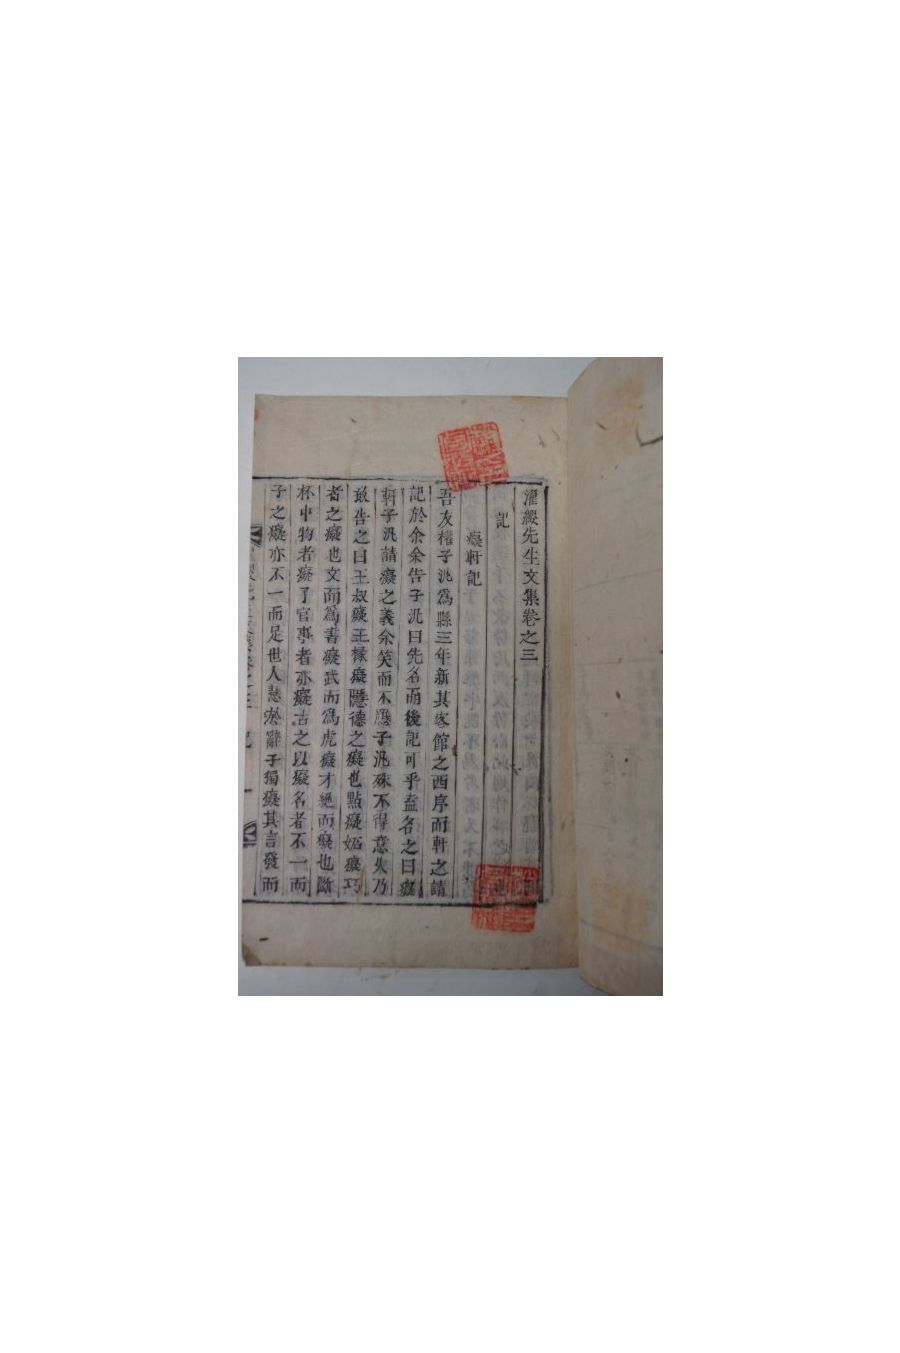 濯纓先生文集卷之三
記
癡軒記
吾友權子汎爲縣三年新其客館之西序而軒之請
記於余余告子汎曰先名而後記可乎盍名之曰癡
軒子汎請癡之義余笑而不應子汎殊不得意失乃
敢告之曰王叔癡王椽癡隱德之癡也點癡妬癡巧
者之癡也文而爲書癡武而爲虎癡才絶而癡也斷
杯中物者癡了官事者亦癡古之以癡名者不一而
子之癡亦不一而足世人慧於辭子獨癡其言發而